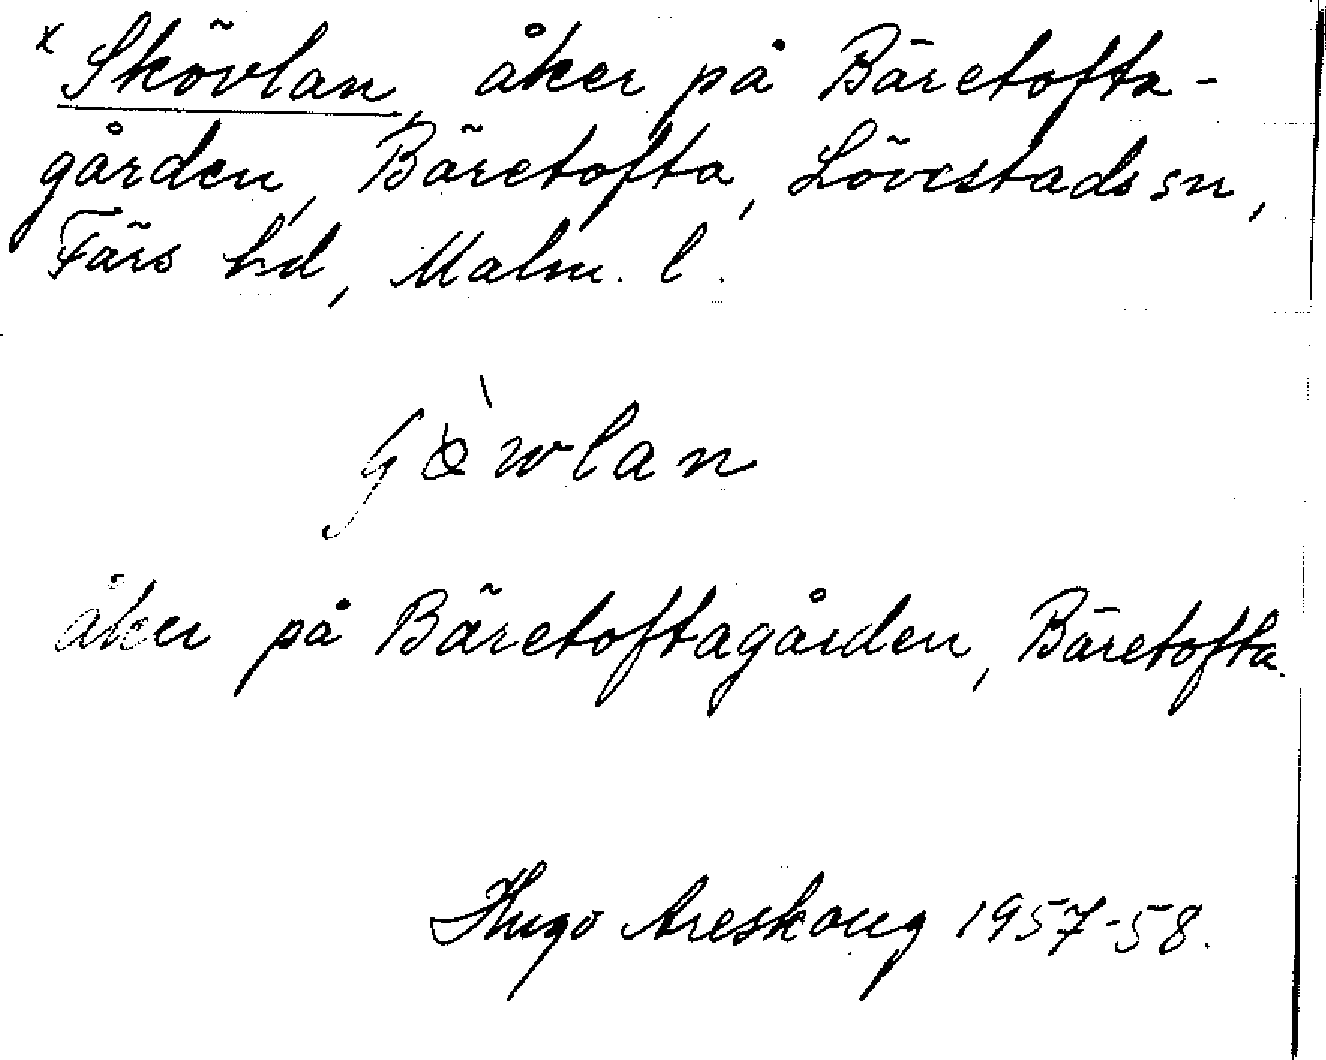 x Skövlan, åker på Bäretofta-
gården, Bäretofta, Lövestads sn,
Färs hd, Malm. l.
åker på Bäretoftagården, Bäretofta.
Hugo Areskoug 1957-58.